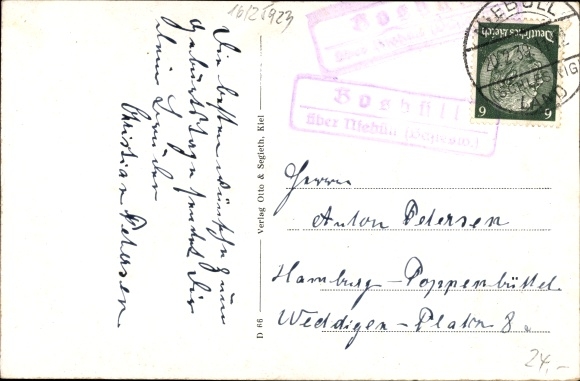 16/2 5923
Die besten Wünsche zum
Geburtstage sendet Dir
Dein Bruder
Christian Petersen.
D 66
Verlag Otto & Segieth, Kiel
Bosbüll
über Niebüll (Schlesw.)
Bosbüll
über Niebüll (Schlesw.)
NIEBÜLL
(SCHLESWIG)
LAND
Deutsches Reich
6 6
Herrn
Anton Petersen
Hamburg-Poppenbüttel
Weddigen-Platz 8a
24,-